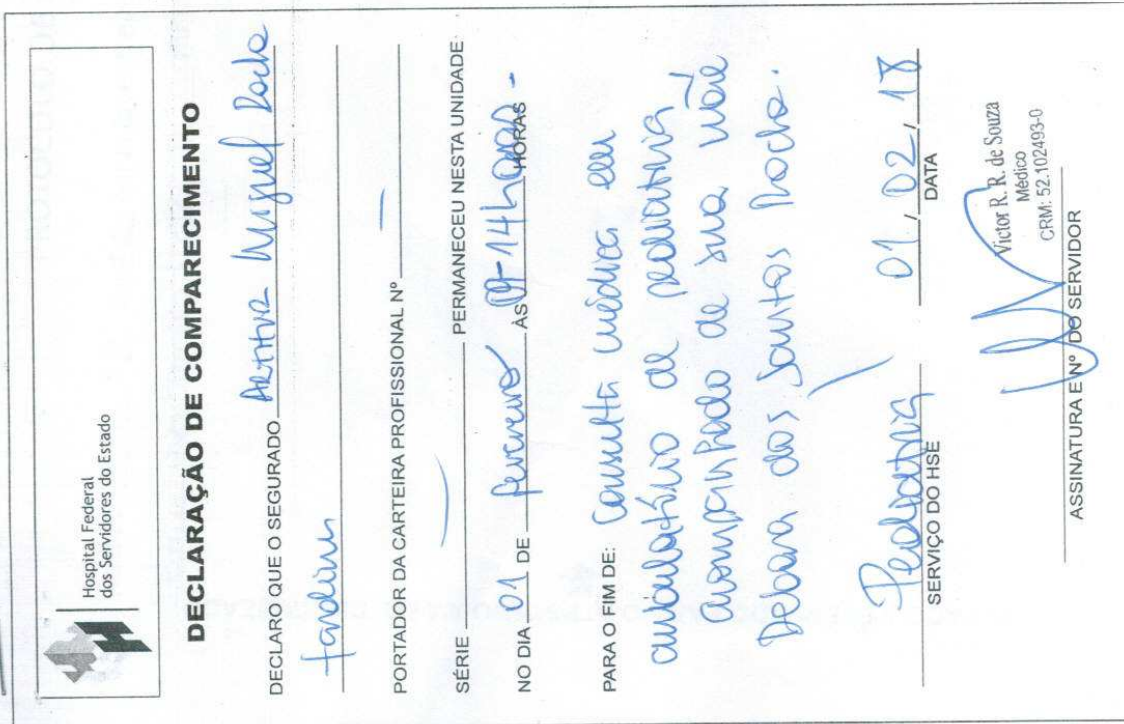 Hospital Federal
dos Servidores do Estado
DECLARAÇÃO DE COMPARECIMENTO
DECLARO QUE O SEGURADO Arthur Miguel Rocha
PORTADOR DA CARTEIRA PROFISSIONAL Nº —
SÉRIE — PERMANECEU NESTA UNIDADE
NO DIA 01 DE fevereiro ÀS 09-14horas - HORAS
PARA O FIM DE: Consulta médica em
ambulatório de pediatria
acompanhado de sua mãe
Debora dos Santos Rocha.
Pediatria 01 / 02 / 18
SERVIÇO DO HSE DATA
Victor R. R. de Souza
Médico
CRM: 52.102493-0
ASSINATURA E Nº DO SERVIDOR